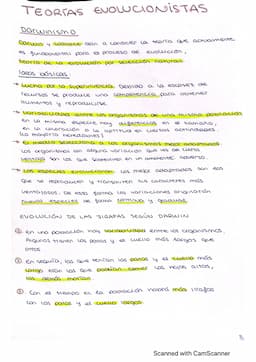 TEORÍAS EVOLUCIONISTAS
DARWINISMO
Darwin y Wallace dan a conocer la teoría que actualmente
es fundamental para el proceso de evolución,
teoría de la evolución por selección natural
Ideas básicas
→ Lucha por la supervivencia. Debido a la escasez de
recursos se produce una competencia para obtener
alimentos y reproducirse.
→ Variabilidad entre los organismos de una misma población
En la misma especie hay diferencias en el tamaño,
en la coloración o la aptitud en ciertas actividades.
(La mayoría heredables)
→ El medio selecciona a los organismos mejor adaptados.
Los organismos con alguna variación que les da cierta
ventaja son los que sobreviven en un ambiente adverso.
→ Las especies evolucionan. Los mejor adaptados son los
que se reproducen y transmiten sus caracteres más
ventajosos. De esta forma las variaciones originarán
nuevas especies de forma continua y gradual.
EVOLUCIÓN DE LAS JIRAFAS SEGÚN DARWIN
① En una población hay variabilidad entre los organismos.
Algunos tienen las patas y el cuello más largos que
otros
② En sequía, los que tenían las patas y el cuello más
largo eran los que podían comer las hojas altas,
los demás morían.
③ Con el tiempo en la población habrá más jirafas
con las patas y el cuello largos.
Scanned with CamScanner